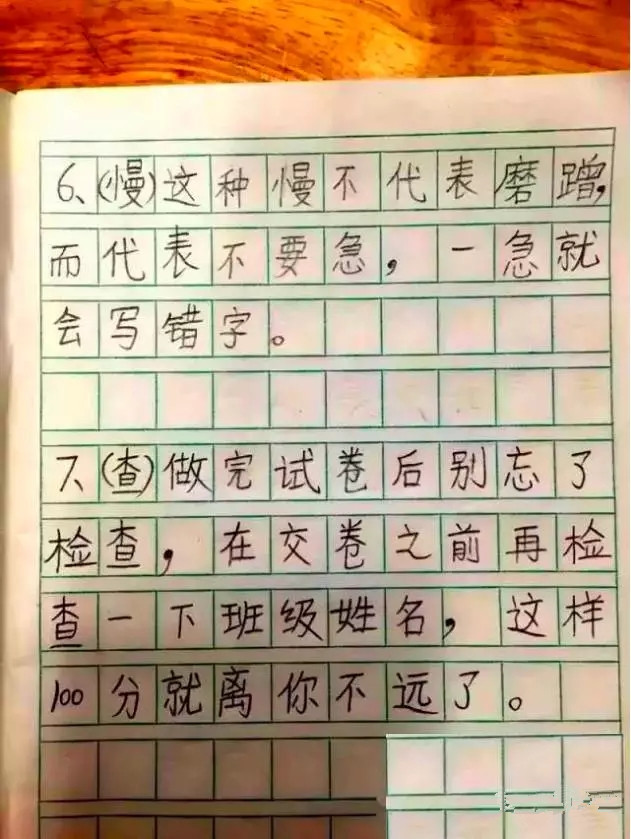 6、(慢)这种慢不代表磨蹭,
而代表不要急，一急就
会写错字。
7、(查)做完试卷后别忘了
检查，在交卷之前再检
查一下班级姓名，这样
100分就离你不远了。